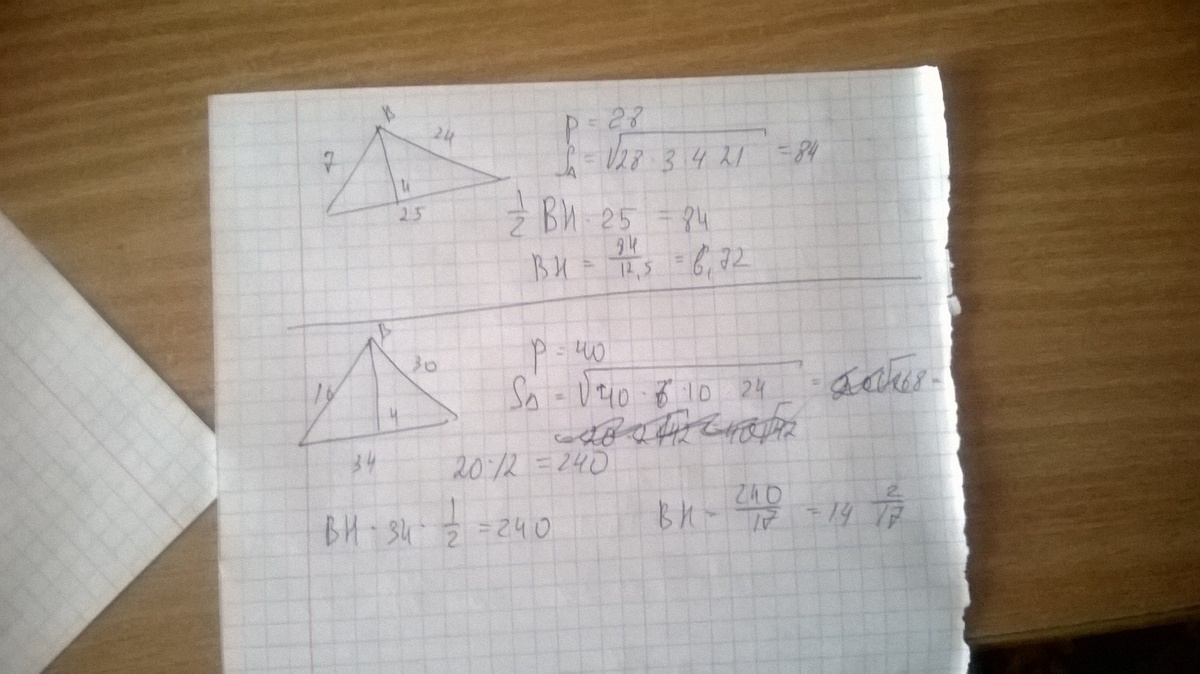 B
7
24
H
25
p = 28
S△ = √28 · 3 4 21 = 84
1/2 BH · 25 = 84
BH = 84/12,5 = 6,72
B
16
30
H
34
P = 40
S△ = √40 · 6 · 10 24 =
20·12 = 240
BH · 34 · 1/2 = 240
BH = 240/17 = 14 2/17